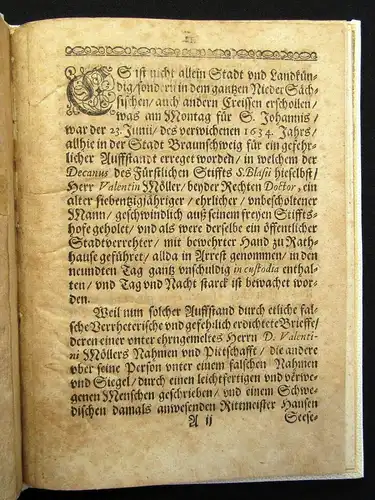 ES ist nicht allein Stadt vnd Landkün-
dig/sondern in dem gantzen Nieder Säch-
sischen/auch andern Creissen erschollen/
was am Montag für S. Johannis/
war der 23. Junii/des verwichenen 1634. Jahrs/
allhie in der Stadt Braunschweig für ein gefehr-
licher Auffstandt erreget worden/in welchem der
Decanus des Fürstlichen Stiffts S. Blasii hieselbst/
Herr Valentin Möller/beyder Rechten Doctor, ein
alter siebentzigjähriger/ehrlicher/vnbescholtener
Mann/geschwindlich auß seinem freyen Stiffts-
hofe geholet/vnd als were derselbe ein öffentlicher
Stadtverrehter/mit bewehrter Hand zu Rath-
hause geführet/allda in Arrest genommen/in den
neundten Tag gantz vnschuldig in custodia enthal-
ten/vnd Tag vnd Nacht starck ist bewachet wor-
den.
Weil nun solcher Auffstandt durch etliche fal-
sche Verrheterische vnd gefehrlich erdichtete Brieffe/
deren einer vnter ehrngemeltes Herrn D. Valenti-
ni Möllers Nahmen vnd Pittschafft/die andere
vber seine Person vnter einem falschen Nahmen
vnd Siegel/durch einen leichtfertigen vnd verwe-
genen Menschen geschrieben/vnd einem Schwe-
dischen damals anwesenden Rittmeister Hansen
A ij Seese-